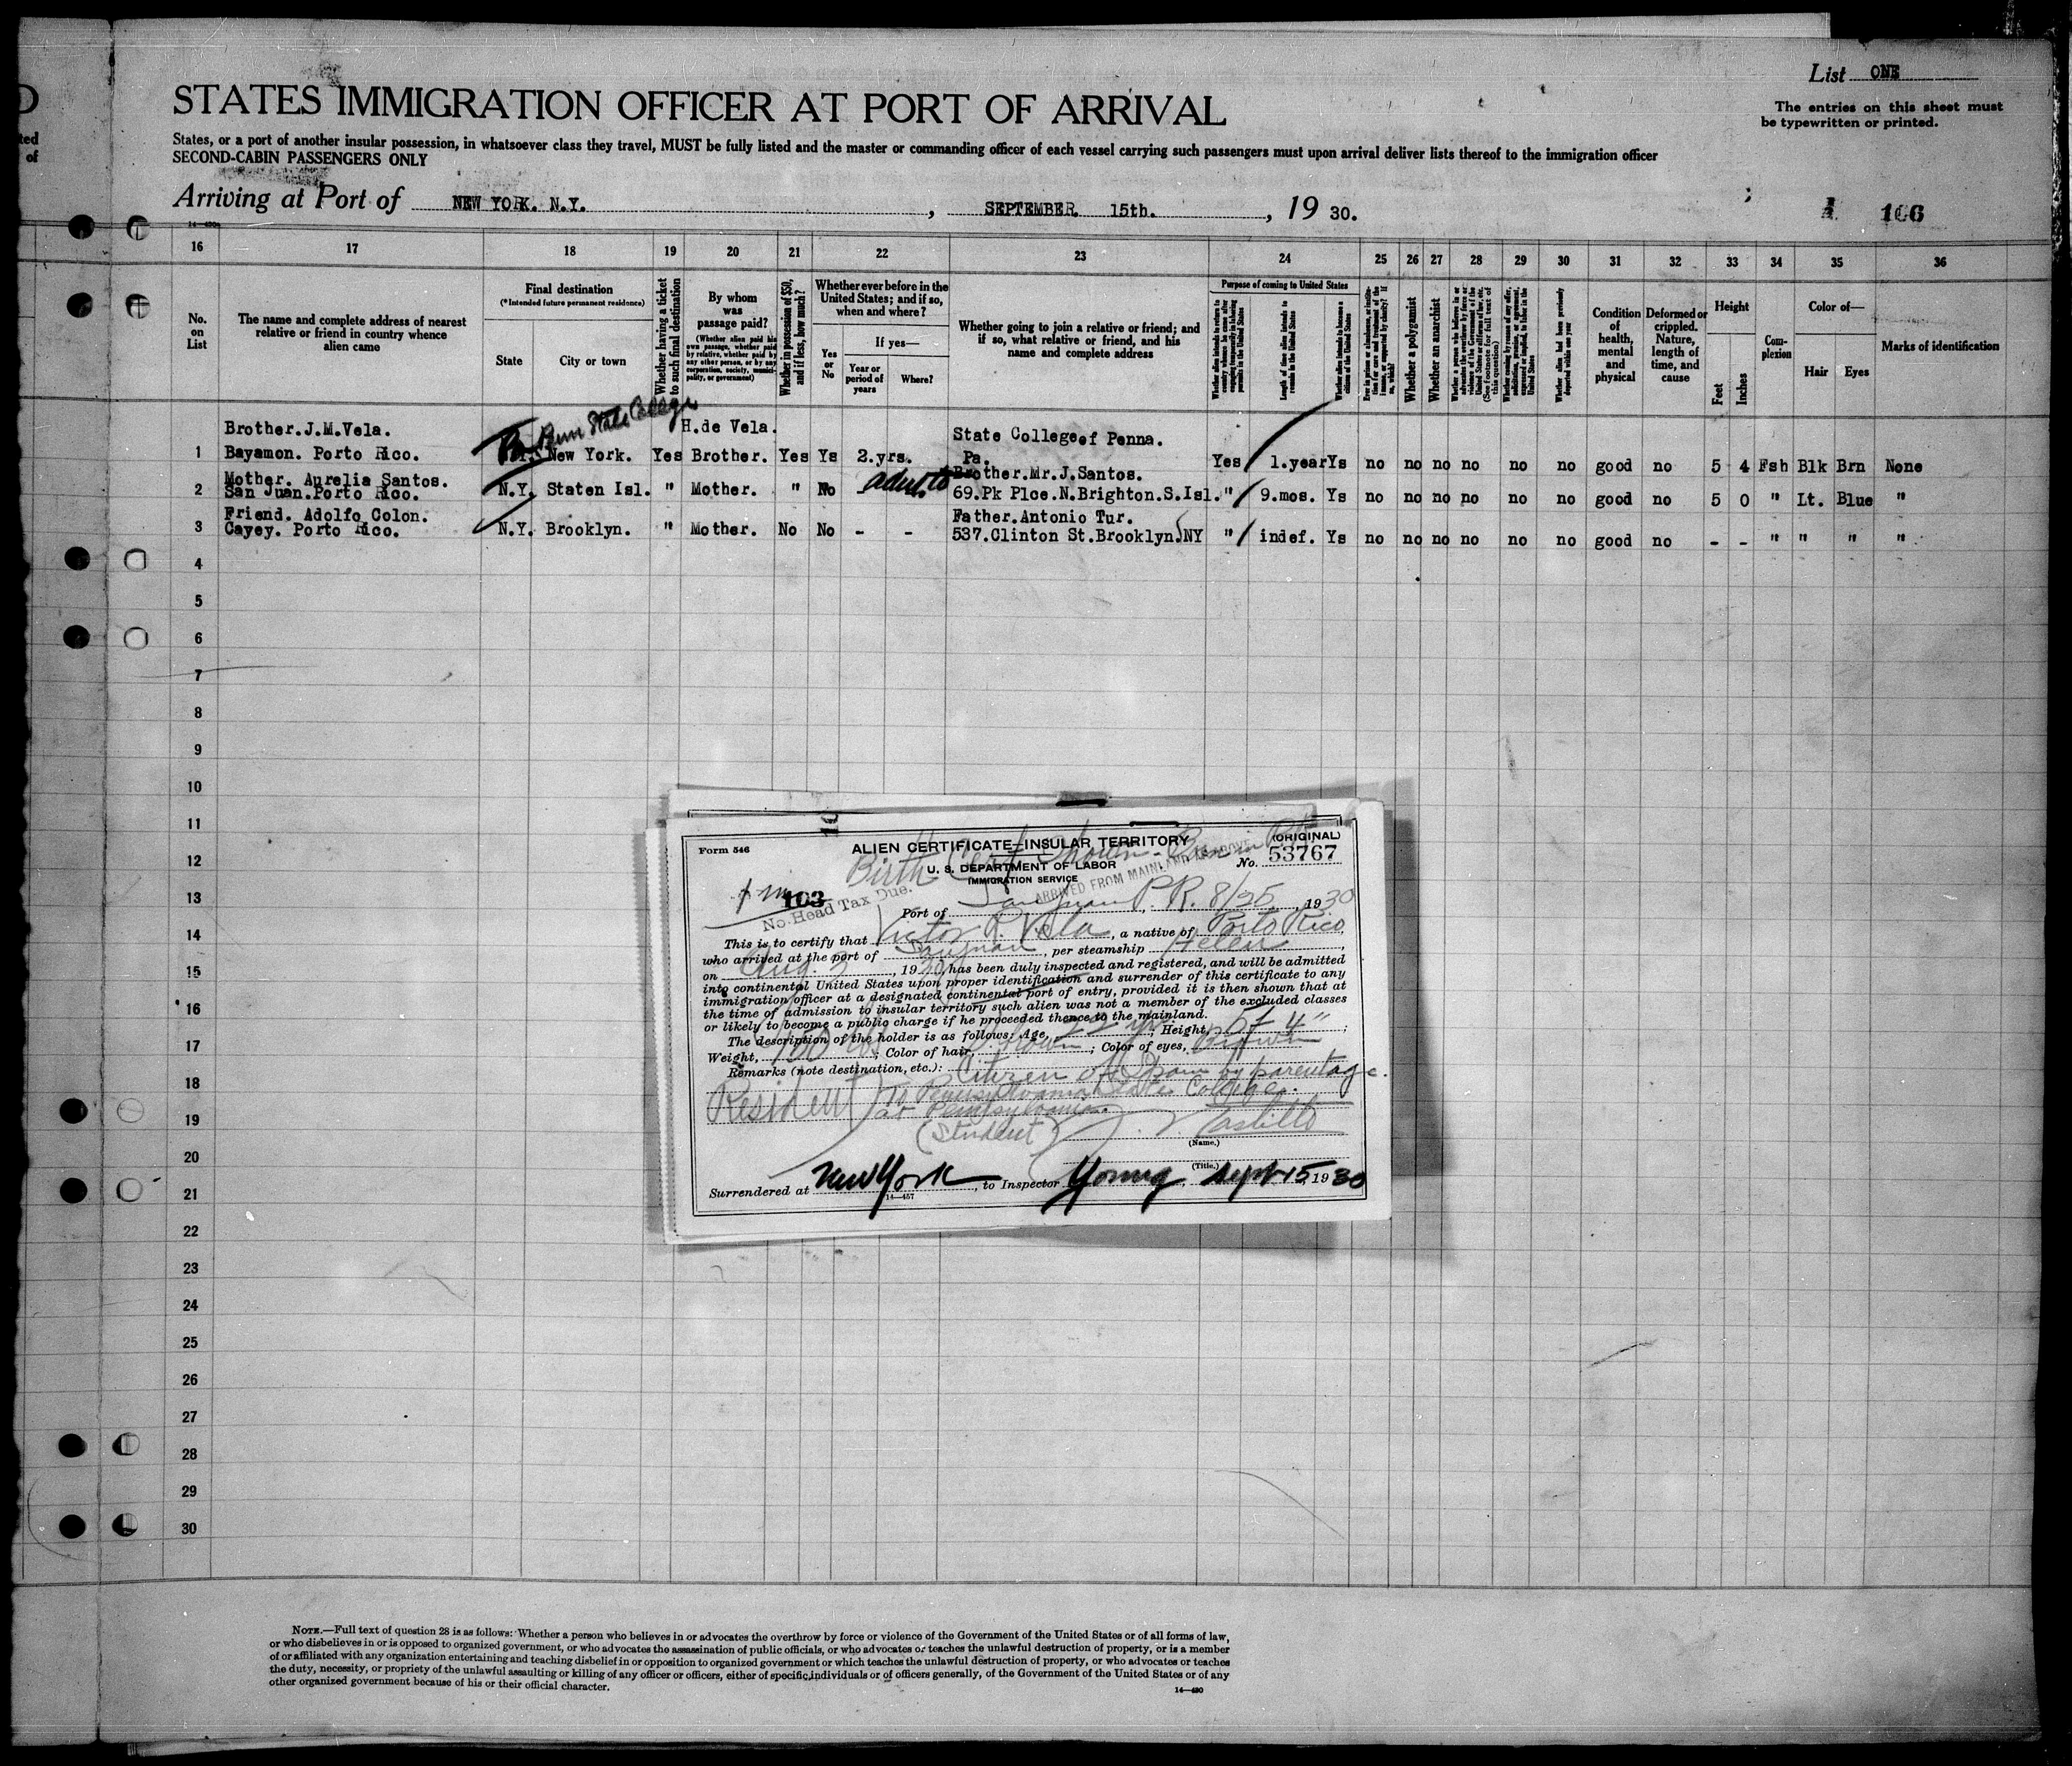 List ONE
STATES IMMIGRATION OFFICER AT PORT OF ARRIVAL
The entries on this sheet must
be typewritten or printed.
States, or a port of another insular possession, in whatsoever class they travel, MUST be fully listed and the master or commanding officer of each vessel carrying such passengers must upon arrival deliver lists thereof to the immigration officer
SECOND-CABIN PASSENGERS ONLY
Arriving at Port of NEW YORK. N.Y. , SEPTEMBER 15th. , 19 30.
106
14—430
16 17 18 19 20 21 22 23 24 25 26 27 28 29 30 31 32 33 34 35 36
No. on List
The name and complete address of nearest relative or friend in country whence alien came
Final destination
(*Intended future permanent residence)
State
City or town
Whether having a ticket to such final destination
By whom was passage paid?
(Whether alien paid his own passage, whether paid by relative, whether paid by any other person, or by any corporation, society, municipality, or government)
Whether in possession of $50, and if less, how much?
Whether ever before in the United States; and if so, when and where?
Yes or No
If yes—
Year or period of years
Where?
Whether going to join a relative or friend; and if so, what relative or friend, and his name and complete address
Purpose of coming to United States
Length of time alien intends to remain in the United States
Whether alien intends to become a citizen of the United States
Whether a polygamist
Whether an anarchist
Whether alien had been previously deported within one year
Condition of health, mental and physical
Deformed or crippled. Nature, length of time, and cause
Height
Feet
Inches
Complexion
Color of—
Hair
Eyes
Marks of identification
Penn State College
Brother.J.M.Vela. H.de Vela. State Collegeof Penna.
1 Bayamon. Porto Rico. New York. Yes Brother. Yes Ys 2.yrs. Pa. Yes 1.year Ys no no no no no no good no 5 4 Fsh Blk Brn None
Mother. Aurelia Santos. Brother.Mr.J.Santos.
2 San Juan.Porto Rico. N.Y. Staten Isl. " Mother. " No 69.Pk Plce.N.Brighton.S.Isl. " 9.mos. Ys no no no no no no good no 5 0 " Lt. Blue "
Friend. Adolfo Colon. Father.Antonio Tur.
3 Cayey. Porto Rico. N.Y. Brooklyn. " Mother. No No - - 537.Clinton St.Brooklyn.NY " indef. Ys no no no no no no good no - - " " " "
4
5
6
7
8
9
10
11
12
13
14
15
16
17
18
19
20
21
22
23
24
25
26
27
28
29
30
Form 546
ALIEN CERTIFICATE—INSULAR TERRITORY
(ORIGINAL)
Birth Cert. Shown - Born in P.R.
U. S. DEPARTMENT OF LABOR
No. 53767
IMMIGRATION SERVICE
ARRIVED FROM MAINLAND
103
No Head Tax Due.
Port of San Juan P.R. 8/25 , 1930
This is to certify that Victor R. Vela , a native of Porto Rico,
who arrived at the port of San Juan , per steamship Helen ,
on Aug. 3 , 1930 has been duly inspected and registered, and will be admitted
into continental United States upon proper identification and surrender of this certificate to any
immigration officer at a designated continental port of entry, provided it is then shown that at
the time of admission to insular territory such alien was not a member of the excluded classes
or likely to become a public charge if he proceeded thence to the mainland.
The description of the holder is as follows: Age, 22 yrs. ; Height, 5f 4" ;
Weight, 150 ; Color of hair, Brown ; Color of eyes, Brown
Remarks (note destination, etc.): Citizen of Spain by parentage.
Resident To Pennsylvania State College.
at Pennsylvania.
(Student) Castillo
(Name.)
(Title.)
Surrendered at New York , to Inspector Young , Sept 15, 1930
14—457
NOTE.—Full text of question 28 is as follows: Whether a person who believes in or advocates the overthrow by force or violence of the Government of the United States or of all forms of law,
or who disbelieves in or is opposed to organized government, or who advocates the assassination of public officials, or who advocates or teaches the unlawful destruction of property, or is a member
of or affiliated with any organization entertaining and teaching disbelief in or opposition to organized government or which teaches the unlawful destruction of property, or who advocates or teaches
the duty, necessity, or propriety of the unlawful assaulting or killing of any officer or officers, either of specific individuals or of officers generally, of the Government of the United States or of any
other organized government because of his or their official character.
14—430